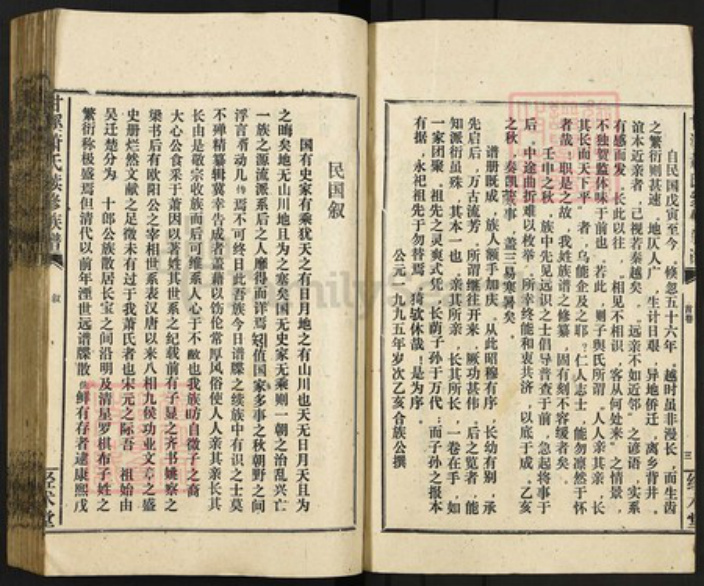 自民国戊寅至今　倏忽五十六年　越时虽非漫长，而生齿
之繁衍则甚速，地仄人广，生计日艰，异地侨迁，离乡背井。
谊本近亲者，己视若秦越矣。远亲不如近邻，之谚语，实系
有感而发。长此以往，相见不相识，客从何处来。之情景，
不独贺监休味于前也。若此，则子舆氏所谓，人人亲其亲，长
其长而天下平。者，乌能企及之耶？仁人志士，能勿凛然于怀
者哉！职是之故，我姓族谱之修纂，固有刻不容缓者矣。
壬申之秋，族中先见远识之士倡导普查于前，急起将事于
后。中途曲折难以枚举，所幸终能和衷共济，以底于成。乙亥
之秋，奏凯蒇事，盖三易寒暑矣。
谱册既成，族人额手加庆。从此昭穆有序，长幼有别，承
先启后，万古流芳。所谓继往开来，厥功甚伟，后之览者，能
知派衍虽殊，其本一也。亲其所亲，长其所长，一卷在手，如
一家团聚。祖先之灵爽式凭，长荫子孙于万代；而子孙之报本
有据，永祀祖先于勿替焉。猗欤休哉！是为序。
公元一九九五年岁次乙亥合族公撰
首卷
三
经术堂
民国叙
国有史家有乘犹天之有日月地之有山川也天无日月天且为
之晦矣地无山川地且为之塞矣国无史家无乘则一朝之治乱兴亡
一族之源流派系后之人靡得而详焉矧值国家多事之秋朝野之间
浮言胥动几焉不可终日此吾族今日谱牒之续族中有识之士莫
不殚精纂辑冀幸告成者盖藉以饬伦常厚风俗使人人亲其亲长其
长由是敬宗收族而后可维系人心于不敝也我族昉自微子之裔
大心公食采于萧因以著姓其世系之纪载前有子显之齐书姚察之
梁书后有欧阳公之宰相世系表汉唐以来八相九侯功业文章之盛
史册烂然文献之足徵未有过于我萧氏者也宋元之际吾　祖始由
吴迁楚分为　十郎公族散居长宝之间沿明及清星罗棋布子姓之
繁衍称极盛焉但清代以前年湮世远谱牒散鲜有存者逮康熙戊
萧氏族修族谱
叙
经术堂